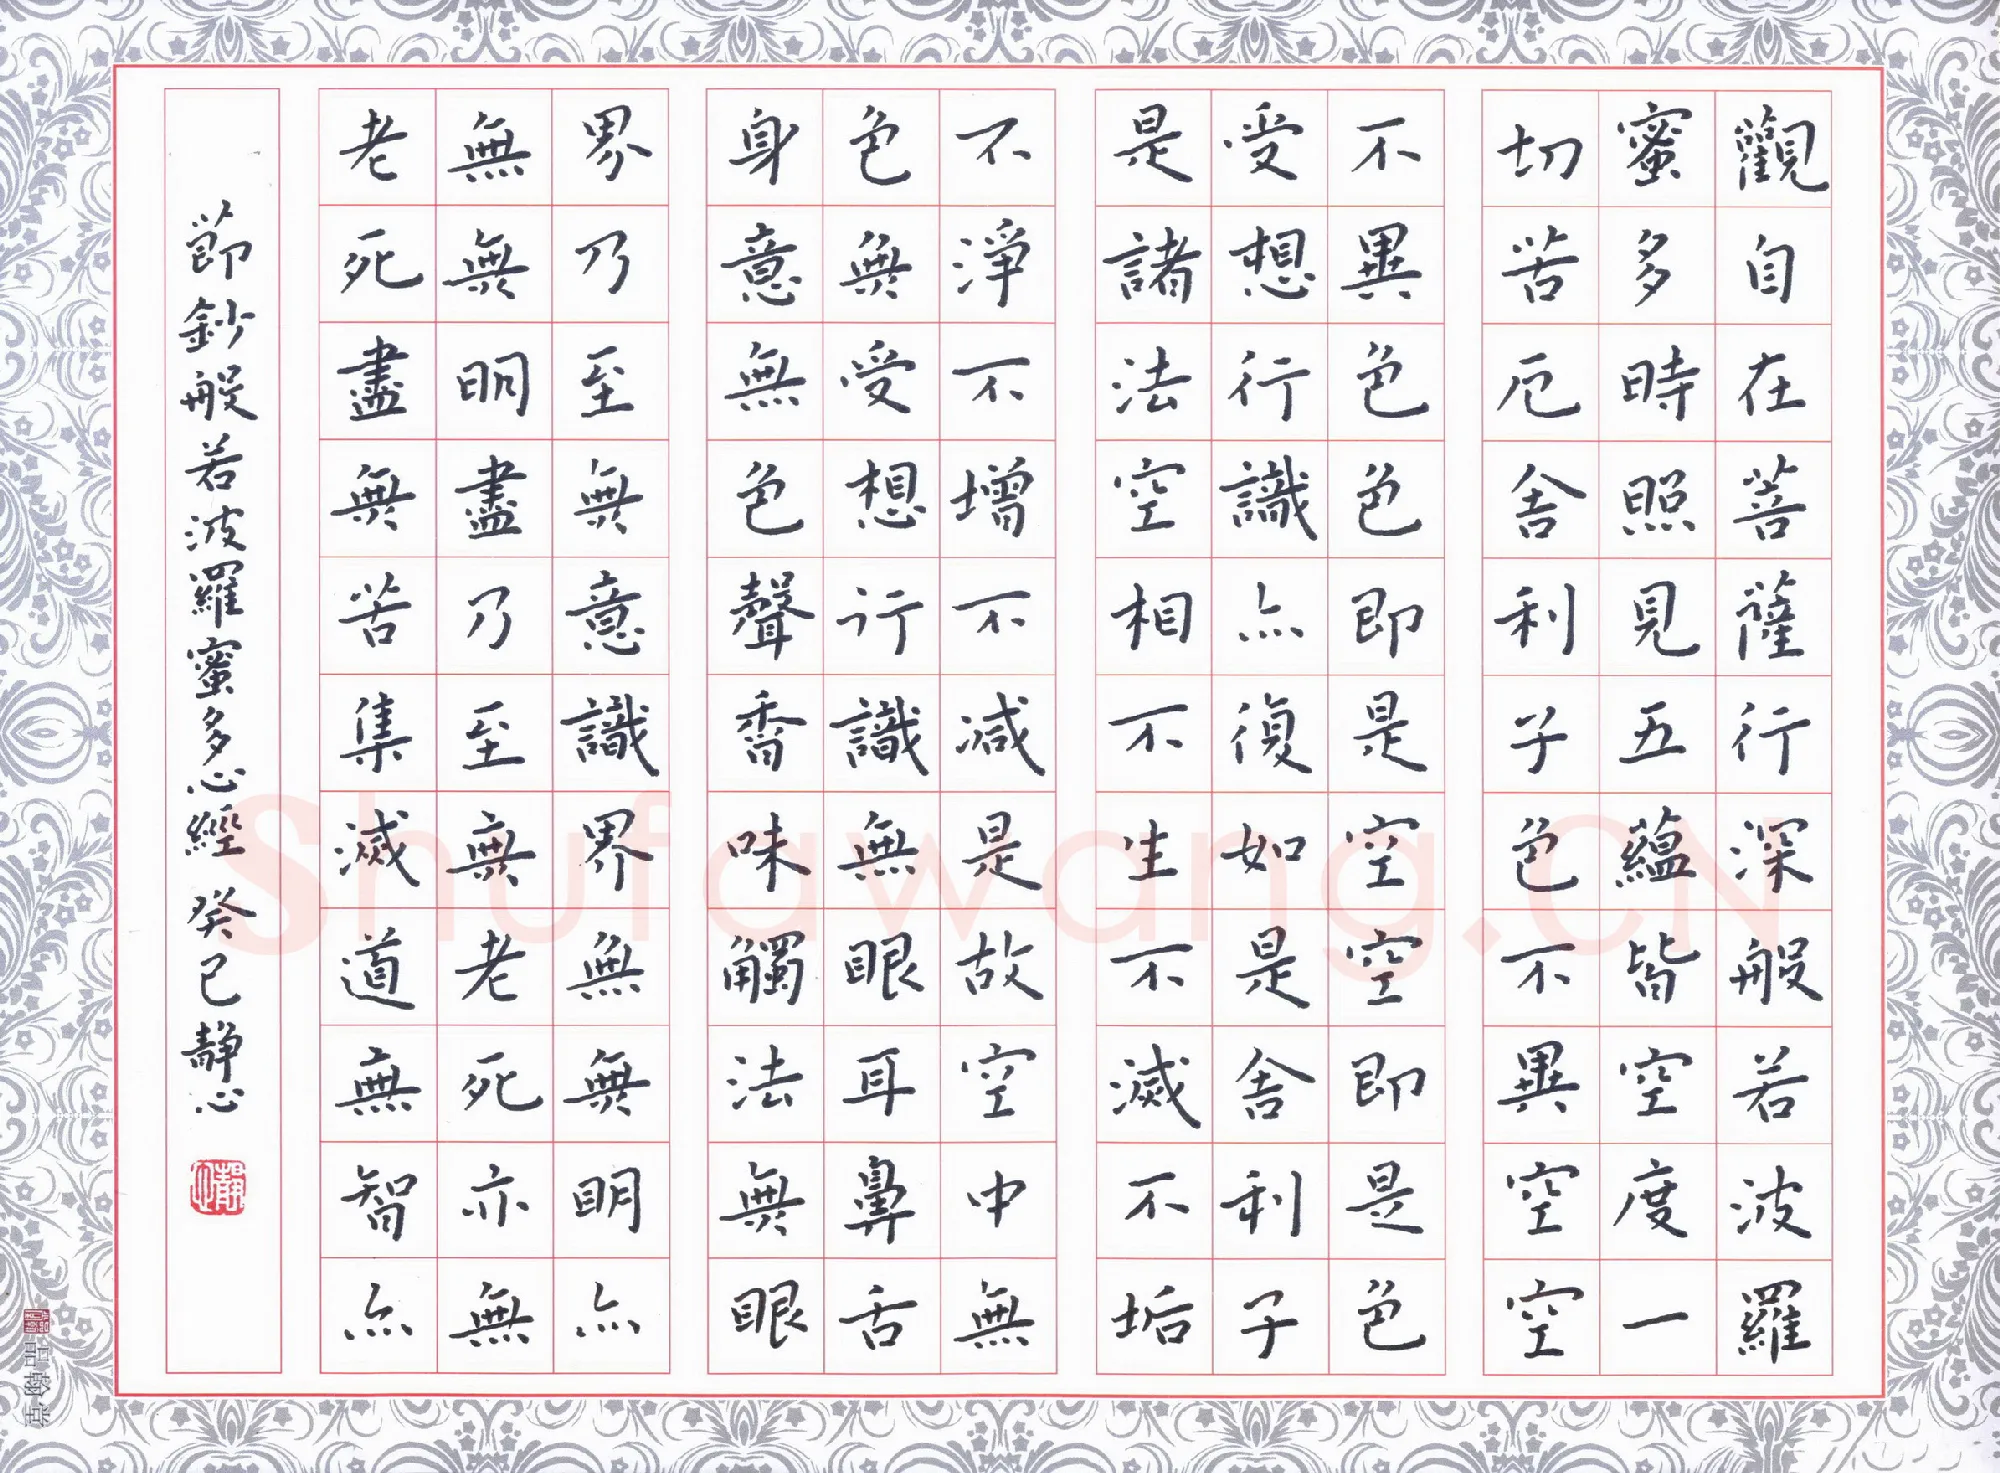 觀自在菩薩行深般若波羅
蜜多時照見五蘊皆空度一
切苦厄舍利子色不異空空
不異色色即是空空即是色
受想行識亦復如是舍利子
是諸法空相不生不滅不垢
不淨不增不减是故空中無
色無受想行識無眼耳鼻舌
身意無色聲香味觸法無眼
界乃至無意識界無無明亦
無無明盡乃至無老死亦無
老死盡無苦集滅道無智亦
節鈔般若波羅蜜多心經 癸巳靜心
靜心
品翰堂
Shufawang.CN